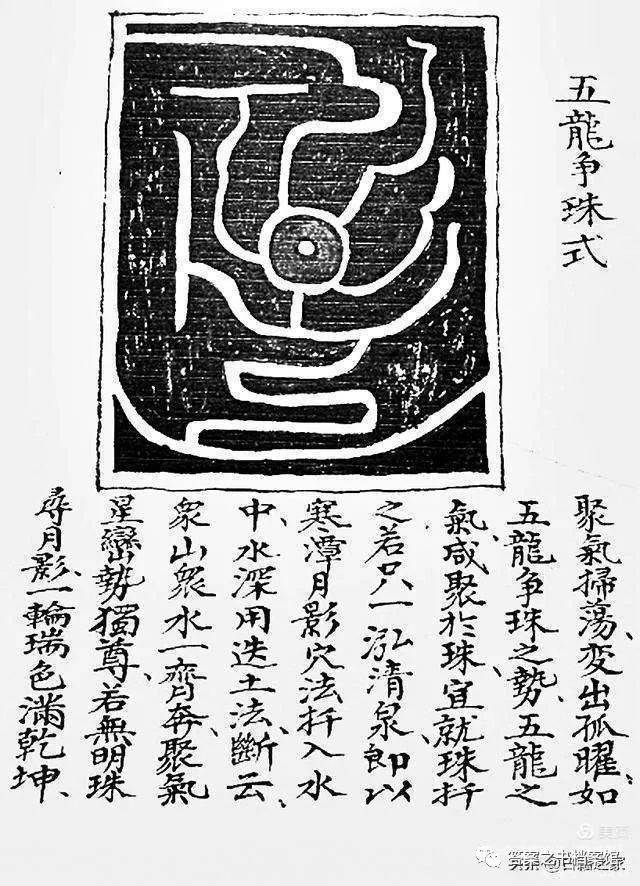 五龍争珠式
聚氣掃蕩、変出孤曜、如
五龍争珠之勢、五龍之
氣、咸聚於珠、宜就珠扦
之、若只一泓清泉、即以
寒潭月影穴法扦入水
中、水深用迭土法、斷云、
衆山衆水一齊奔、聚氣
星巒勢獨尊、若無明珠
尋月影、一輪瑞色滿乾坤、
美篇
答案之书档案馆
头条@古籍之家